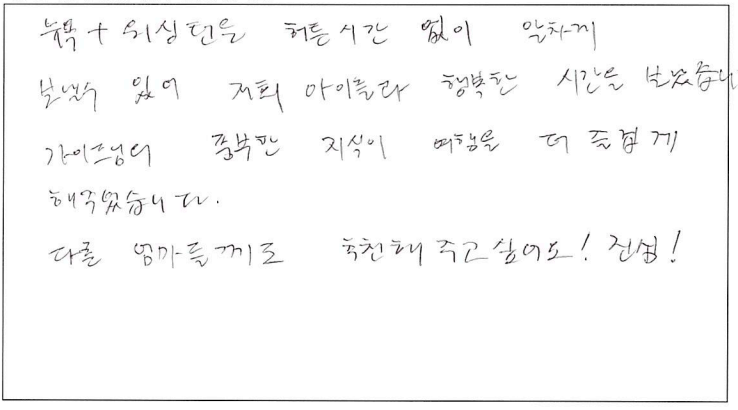 뉴욕 + 워싱턴을 허튼시간 없이 알차게
보낼수 있어 저희 아이들과 행복한 시간을 보냈습니
가이드님의 풍부한 지식이 여행을 더 즐겁게
해주었습니다.
다른 엄마들께도 추천해 주고싶어요! 진심!